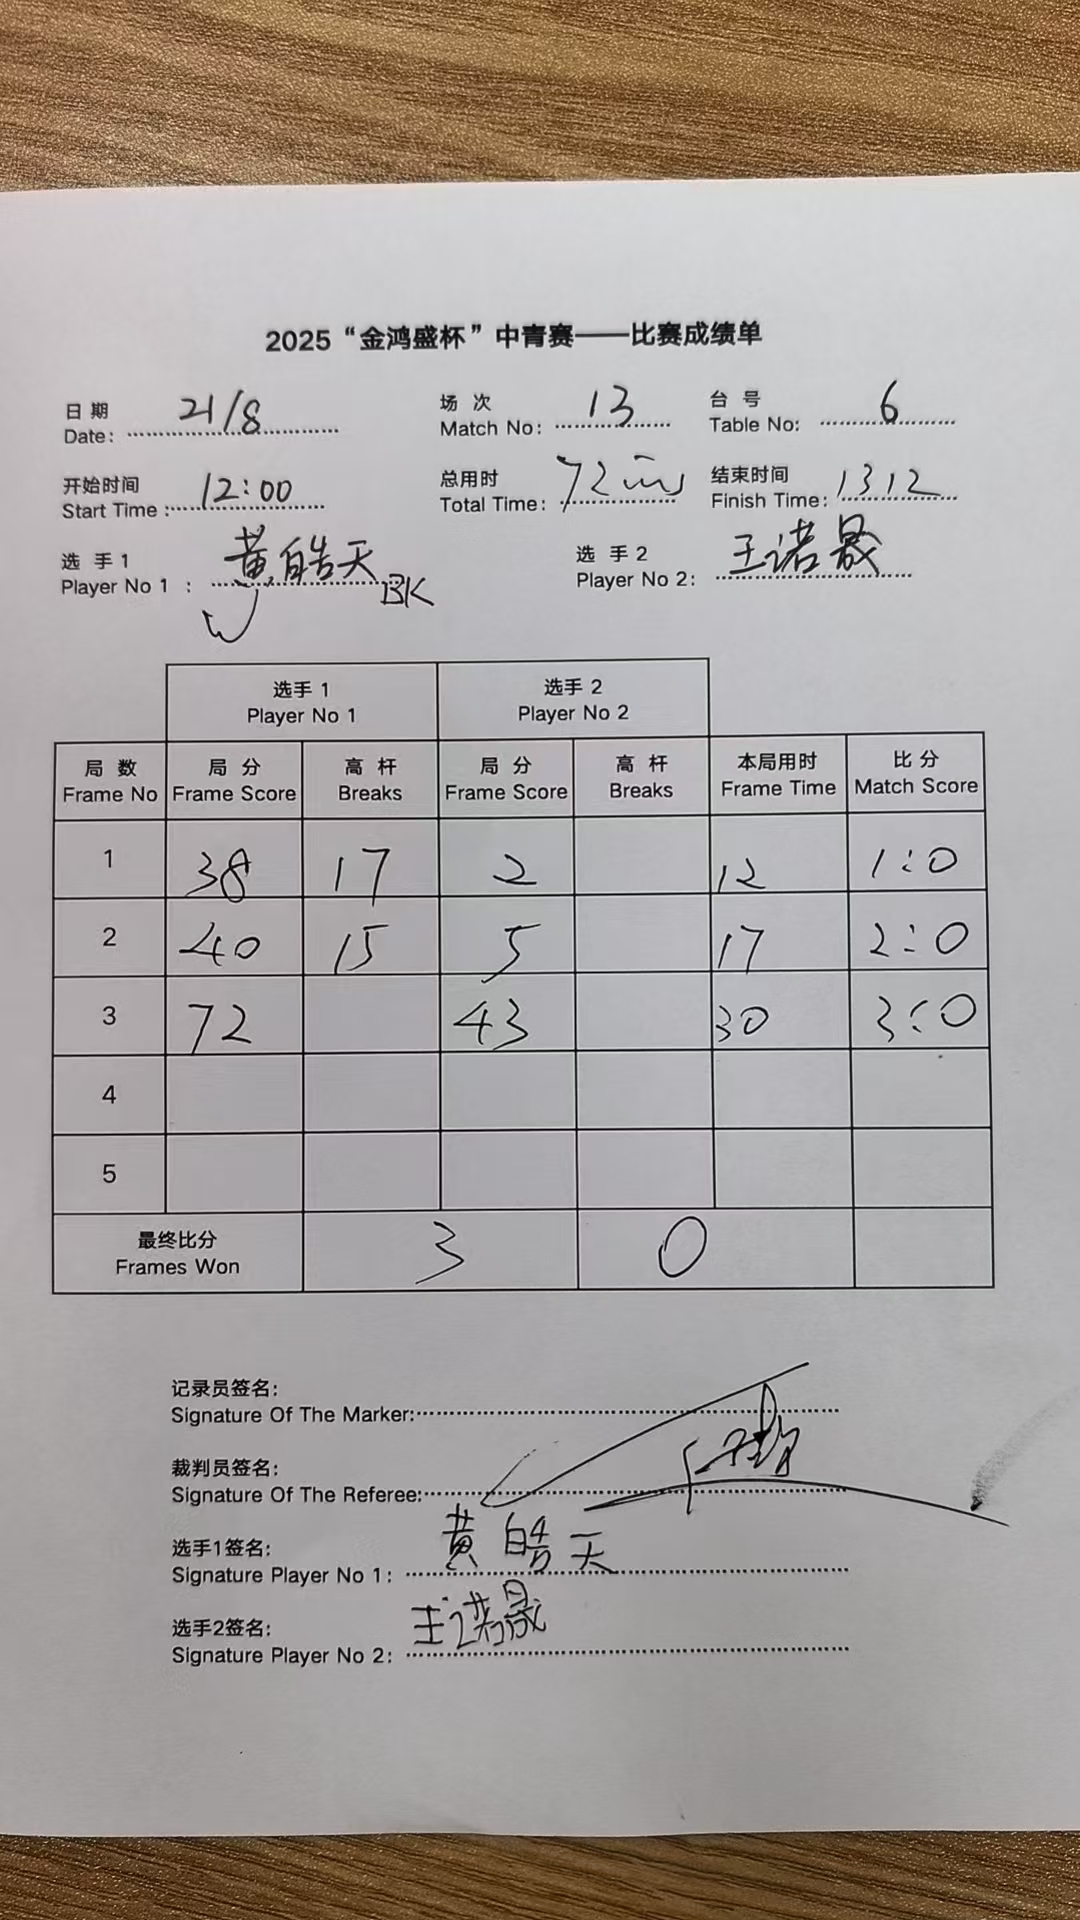 2025“金鸿盛杯”中青赛——比赛成绩单
日 期 场 次 台 号
Date: 21/8 Match No: 13 Table No: 6
开始时间 总用时 结束时间
Start Time: 12:00 Total Time: 72 Finish Time: 1312
选 手1 选 手2
Player No 1 : 黄皓天 BK Player No 2: 王诺晟
W
选手 1 选手 2
Player No 1 Player No 2
局 数 局 分 高 杆 局 分 高 杆 本局用时 比 分
Frame No Frame Score Breaks Frame Score Breaks Frame Time Match Score
1 38 17 2 12 1:0
2 40 15 5 17 2:0
3 72 43 30 3:0
4
5
最终比分
Frames Won 3 0
记录员签名:
Signature Of The Marker:
裁判员签名:
Signature Of The Referee:
选手1签名:
Signature Player No 1: 黄皓天
选手2签名:
Signature Player No 2: 王诺晟